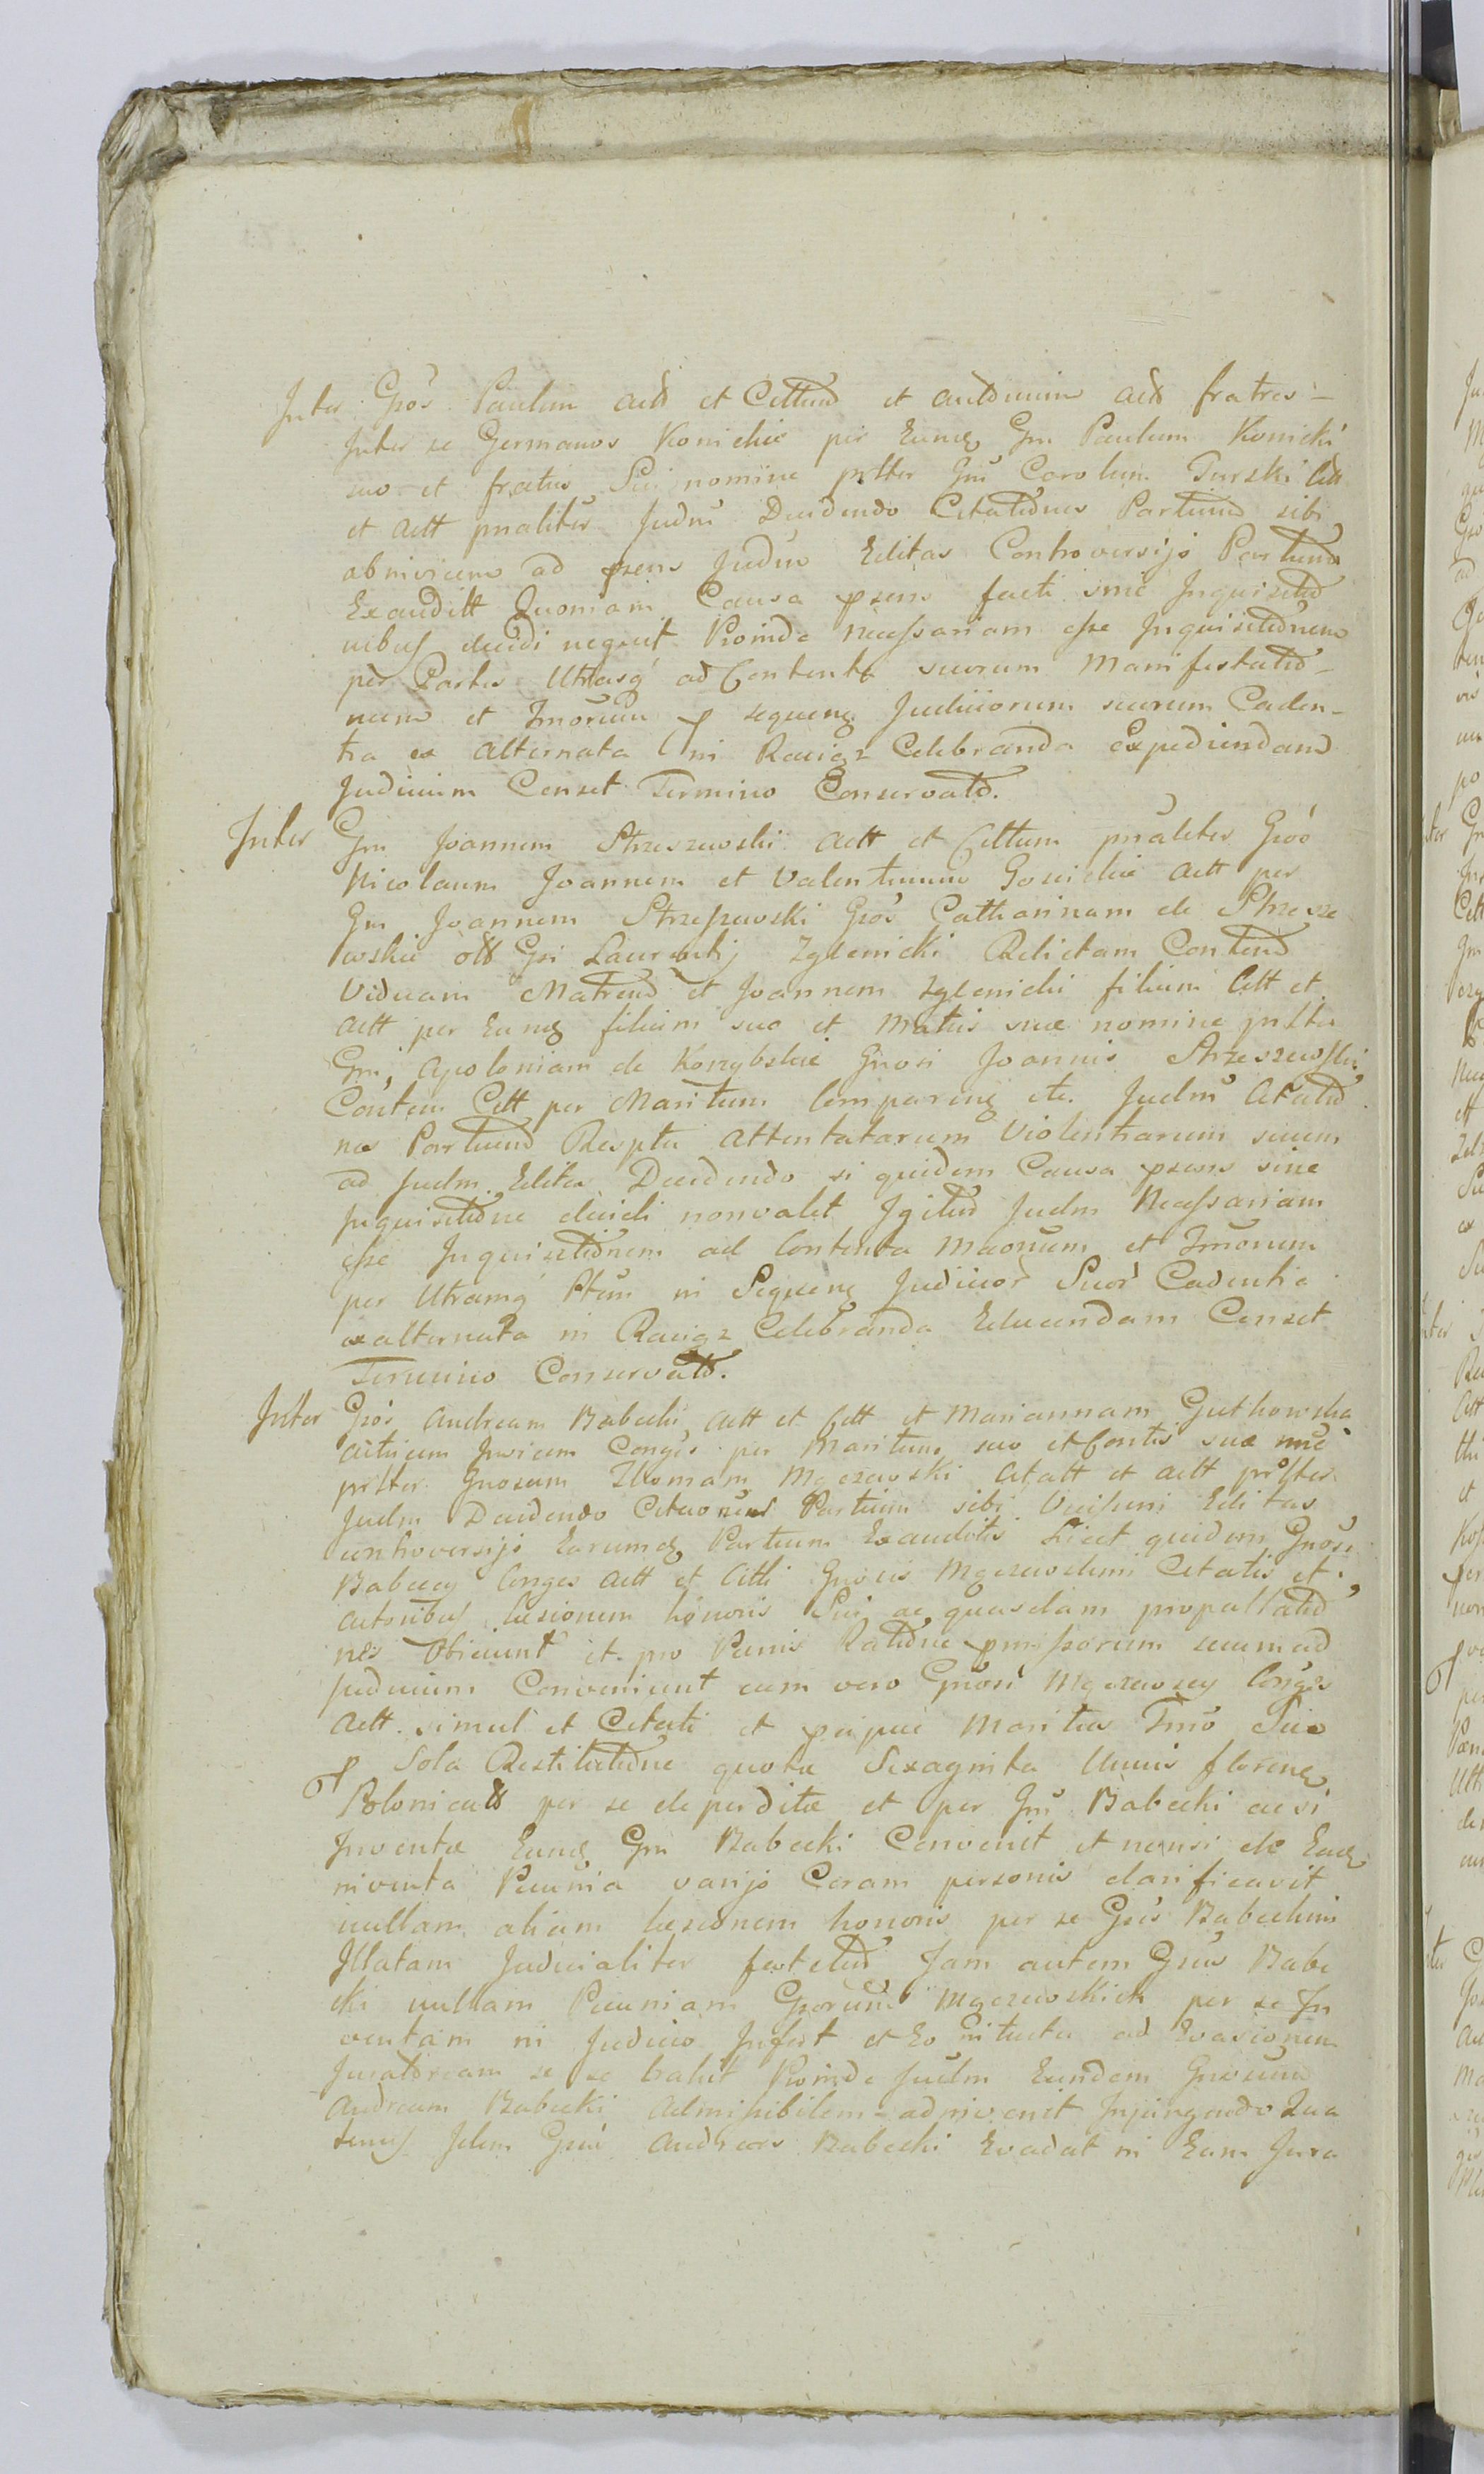 Inter Gsos Paulum Actt et Cittum et Antonium Actt fratres –
Inter se Germanos Konickie per Eundq Gm Paulum Konicki
suo et fratris Sui nomine prltter Gm Carolum Turski Citt
et Actt pnaliter Judm Decidendo Citatiōnes Partium sibi
abinvicem ad psens Judm Editas Controversijs Partium
Exauditt Quoniam Causa psens facti sine Inquisitiō
nibus decidi nequit Proinde necessariam esse Inquisitiōnem
per Partes Utrasq ad Contenta suorum Manifestatiō–
num et Tmorum p sequenq Judiciorum suorum Caden–
tia ex alternata in Raciąz Celebranda Expediendam
Judicium Censet Termino Conservatō.
Inter Gm Joannem Strzeszewski Actt et Cittum pnaliter Gsos
Nicolaum Joannem et Valentinum Gosickie Actt per
Gm Joannem Strzeszewski Gsos Catharinam de Strzesze
wskie ott Gsi Laurentij Zglenicki Relictam Contem
Viduam Matrem et Joannem Zglenicki filium Citt et
Actt per Eundq filium suo et Matris suæ nomine prltter
Gm, Apoloniam de Korzybskie Gnosi Joannis Strzeszewski
Contem Citt per Maritum Comparenq etc. Judm Citatiō
nes Partium Resptu Attentatarum Violentiarum suum
ad Judm Editas Decidendo si quidem Causa psens sine
Inquisitiōne decidi nonvalet Igitur Judm Necessariam
esse Inquisitiōnem ad Contenta Maorum et Tmorum
per Utramq Ptem in Sequenq Judicior Suor Cadentia
ex alternata in Raciąz Celebranda Educendam Censet
Termino Conservatō.
Inter Gsos Andream Babecki Actt et Citt et Mariannam Gutkowska
Actricem Juricam Conges per Maritum suo et Contis suæ nne
prltter Gnosum Thomam Mgczewski Citatt et Actt prltter
Judm Decidendo Citaones Partium sibi Vicissim Editas
controversijs Earumdq Partium Exauditis Licet quidem Gnosi
Babeccy Conges Actt et Citti Gnosis Mgczewskim Citatis et
Actoribus læsionem honoris Sui ac quasdam propallatiō
nes Obiiciunt et pro Penis Ratiōne pmissorum secum ad
Judicium Conveniunt cum vero Gnosi Mgczewscy Conges
Actt. simul et Citati et pcipue Maritus Tmo Suo
p Sola Restitutiōne quotæ Sexaginta Unius florenq
Polonicatt per se deperditæ et per Gm Babecki acsi
Inventæ Eundq Gm Babecki Convenit et nonsi de Eadq
inventa Pecunia varijs Coram personis clarificavit
nullam aliam læsionem honoris per se Gsis Babeckim
Illatam Judicialiter fatetur Jam autem Gsus Babe
cki nullam Pecuniam Gsorum Mgczewskich per se In
ventam in Judicio Infert et Eo intuitu ad Evasionem
Juratoream se se trahit Proinde Judm Eundem Gnosum
Andream Babecki Admissibilem adinvenit Injungendo Qua
tenus Idem Gsus Andreas Babecki Evadat in Eam Jura